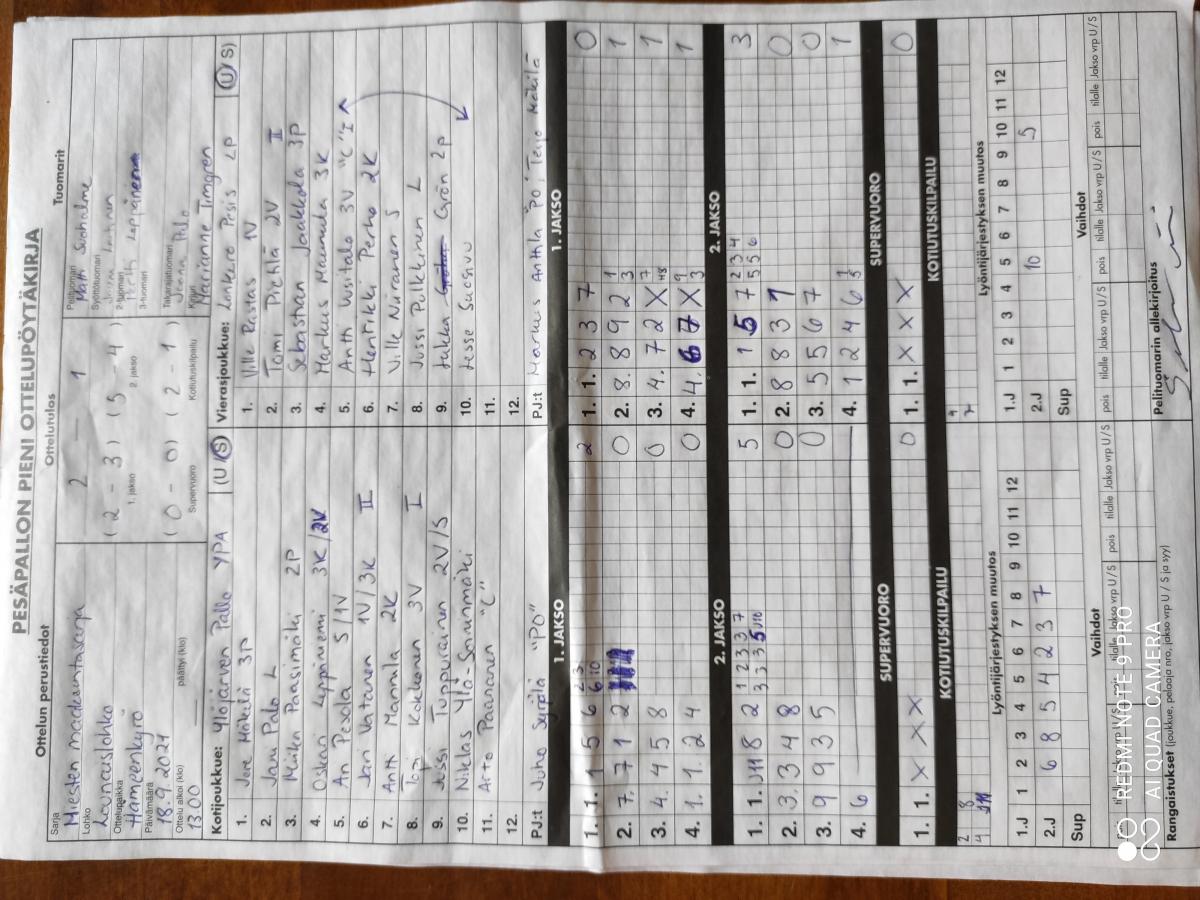 PESÄPALLON PIENI OTTELUPÖYTÄKIRJA
Ottelun perustiedot
Ottelutulos
Tuomarit
Sarja
Miesten maakuntasarja
Lohko
Lounaislohko
Ottelupaikka
Hämeenkyrö
Päivämäärä
18.9.2021
Ottelu alkoi (klo)
päättyi (klo)
13.00
2 — 1
(2 - 3) (5 - 4)
1. jakso
2. jakso
(0 - 0) (2 - 1)
Supervuoro
Kotiutuskilpailu
Pelituomari
Matti Suohalme
Syöttötuomari
2-tuomari
3-tuomari
Takarajatuomari
Kirjuri
Marianne Timgren
Kotijoukkue: Ylöjärven Pallo YPA (U/S)
1. Jere Mäkelä 3P
2. Janu Palo L
3. Miika Paasimäki 2P
4. Oskari Leppiniemi 3K/2V
5. Ari Pesola S/1V
6. Jari Vatanen 1V/3K II
7. Antti Mannila 2K
8. Topi Kokkonen 3V I
9. Jussi Tuppurainen 2V/S
10. Niklas Ylä-Sorunmäki
11. Arto Paananen "C"
12.
PJ:t Juho Syrjälä "PO"
Vierasjoukkue: Lonkero Pesis LP (U/S)
1. Ville Rastas 1V
2. Tomi Piehlä 2V II
3. Sebastian Jaakkola 3P
4. Markus Mannula 3K
5. Antti Uusitalo 3V "C" I
6. Henrikki Perho 2K
7. Ville Niiranen S
8. Jussi Pulkkinen L
9. Grön 2P
10. Jesse Suosivu
11.
12.
PJ:t Markus Anttila "PO", Teijo Mäkilä
1. JAKSO
1. JAKSO
1. 1. 1 5 6 2 3 6 10 2
2. 7. 7 1 2 0
3. 4. 4 5 8 0
4. 1. 1 2 4 0
1. 1. 2 3 7 0
2. 8. 8 9 2 1 3 1
3. 4. 7 2 X 7 1
4. 4. X 9 3 1
2. JAKSO
2. JAKSO
1. 1. J11 8 2 1 2 3 3 7 3 3 3 5 J10 5
2. 3. 3 4 8 0
3. 9 9 3 5 0
4. 6
1. 1. 1 5 7 2 3 4 5 5 6 3
2. 8 8 3 1 0
3. 5 5 6 7 0
4. 1 2 4 6 1 5 1
SUPERVUORO
SUPERVUORO
1. 1. X X X 0
1. 1. X X X 0
KOTIUTUSKILPAILU
KOTIUTUSKILPAILU
2 8
4
9
7
Lyöntijärjestyksen muutos
Lyöntijärjestyksen muutos
1.J 1 2 3 4 5 6 7 8 9 10 11 12
2.J 6 8 5 4 2 3 7
Sup
1.J 1 2 3 4 5 6 7 8 9 10 11 12
2.J 10 5
Sup
Vaihdot
Vaihdot
tilalle Jakso vrp U/S pois tilalle Jakso vrp U/S pois tilalle Jakso vrp U/S
pois tilalle Jakso vrp U/S pois tilalle Jakso vrp U/S pois tilalle Jakso vrp U/S
Rangaistukset (joukkue, pelaaja nro, jakso vrp U / S ja syy)
Pelituomarin allekirjoitus
REDMI NOTE 9 PRO
AI QUAD CAMERA